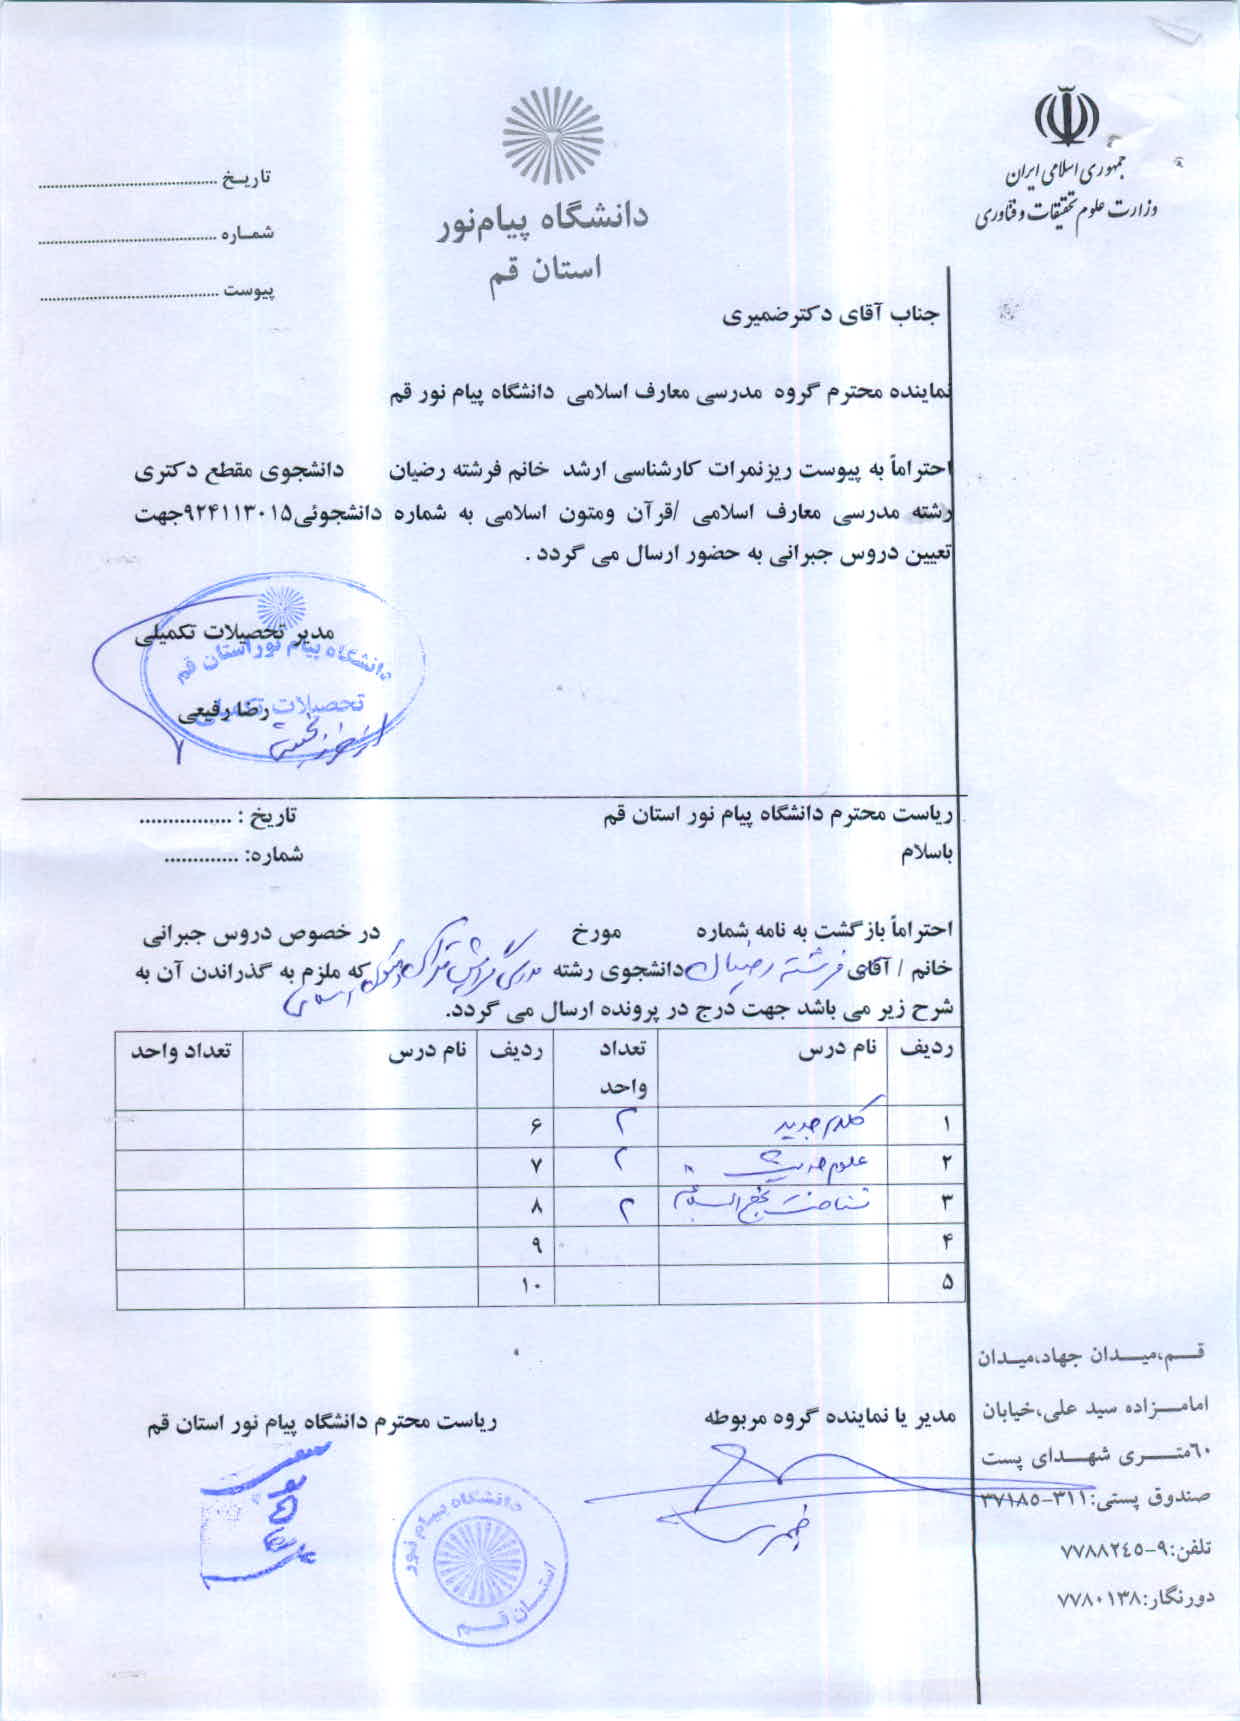 جمهوری اسلامی ایران
وزارت علوم تحقیقات و فناوری
دانشگاه پیام‌نور
استان قم
تاریـخ ..........................................
شمـاره ..........................................
پیوست ..........................................
جناب آقای دکترضمیری
نماینده محترم گروه مدرسی معارف اسلامی دانشگاه پیام نور قم
احتراماً به پیوست ریزنمرات کارشناسی ارشد خانم فرشته رضیان دانشجوی مقطع دکتری
رشته مدرسی معارف اسلامی /قرآن ومتون اسلامی به شماره دانشجوئی۹۲۴۱۱۳۰۱۵جهت
تعیین دروس جبرانی به حضور ارسال می گردد .
مدیر تحصیلات تکمیلی
دانشگاه پیام نور استان قم
تحصیلات تکمیلی
رضا رفیعی
ریاست محترم دانشگاه پیام نور استان قم
تاریخ : ................
باسلام
شماره: .............
احتراماً بازگشت به نامه شماره مورخ در خصوص دروس جبرانی
خانم / آقای فرشته رضیان دانشجوی رشته مدرسی گرایش قرآن و متون که ملزم به گذراندن آن به
اسلامی
شرح زیر می باشد جهت درج در پرونده ارسال می گردد.
ردیف نام درس تعداد واحد ردیف نام درس تعداد واحد
۱ کلام جدید ۲ ۶
۲ علوم حدیث ۲ ۷
۳ شناخت نهج البلاغه ۲ ۸
۴ ۹
۵ ۱۰
مدیر یا نماینده گروه مربوطه
ریاست محترم دانشگاه پیام نور استان قم
ضمیری
دانشگاه پیـام نور
استــان قــم
قــم،میــدان جهاد،میـدان
امامــزاده سید علی،خیابان
۶۰متــری شهــدای پست
صندوق پستی:۳۱۱-۳۷۱۸۵
تلفن:۹-۷۷۸۸۲۴۵
دورنگار:۷۷۸۰۱۳۸